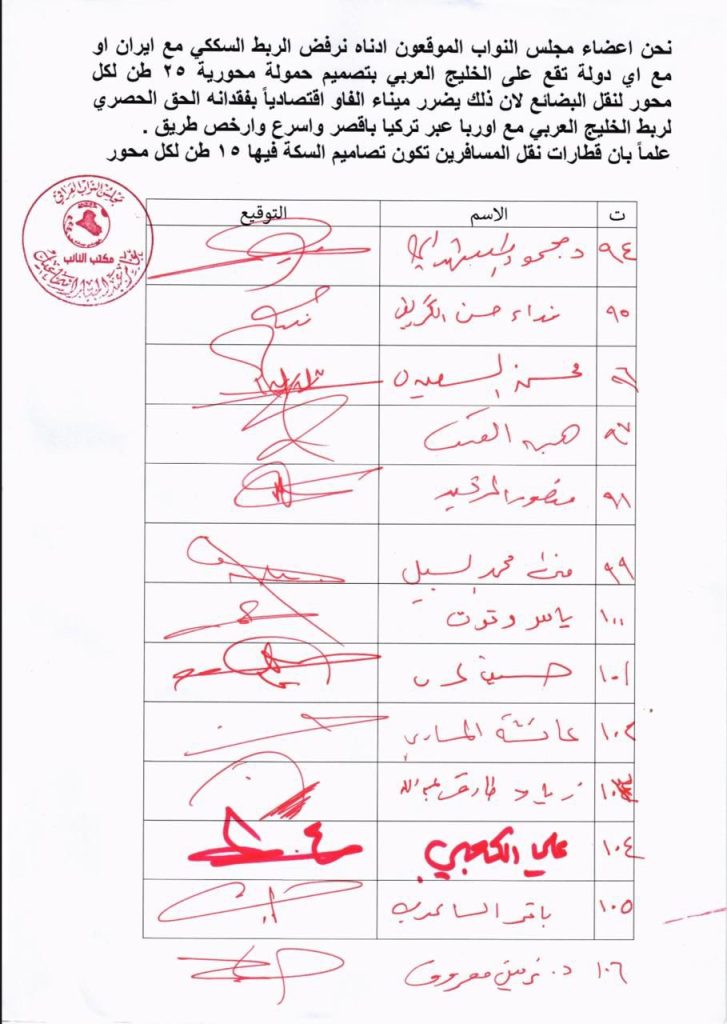 نحن اعضاء مجلس النواب الموقعون ادناه نرفض الربط السككي مع ايران او
مع اي دولة تقع على الخليج العربي بتصميم حمولة محورية ٢٥ طن لكل
محور لنقل البضائع لان ذلك يضرر ميناء الفاو اقتصادياً بفقدانه الحق الحصري
لربط الخليج العربي مع اوربا عبر تركيا باقصر واسرع وارخص طريق .
علماً بان قطارات نقل المسافرين تكون تصاميم السكة فيها ١٥ طن لكل محور
مجلس النواب العراقي
مكتب النائب
ت الاسم التوقيع
٩٤ د. محمود المشهداني
٩٥ نداء حسن
٩٦ محسن السعيدي
٩٧ هبه
٩٨ منصور المرعيد
٩٩ محمد
١٠٠ ياسر وتوت
١٠١ حسين
١٠٢ عائشة المساري
١٠٣ زياد طارق عبدالله
١٠٤ علي الكعبي
١٠٥ باقر الساعدي
١٠٦ د. نرمين معروف